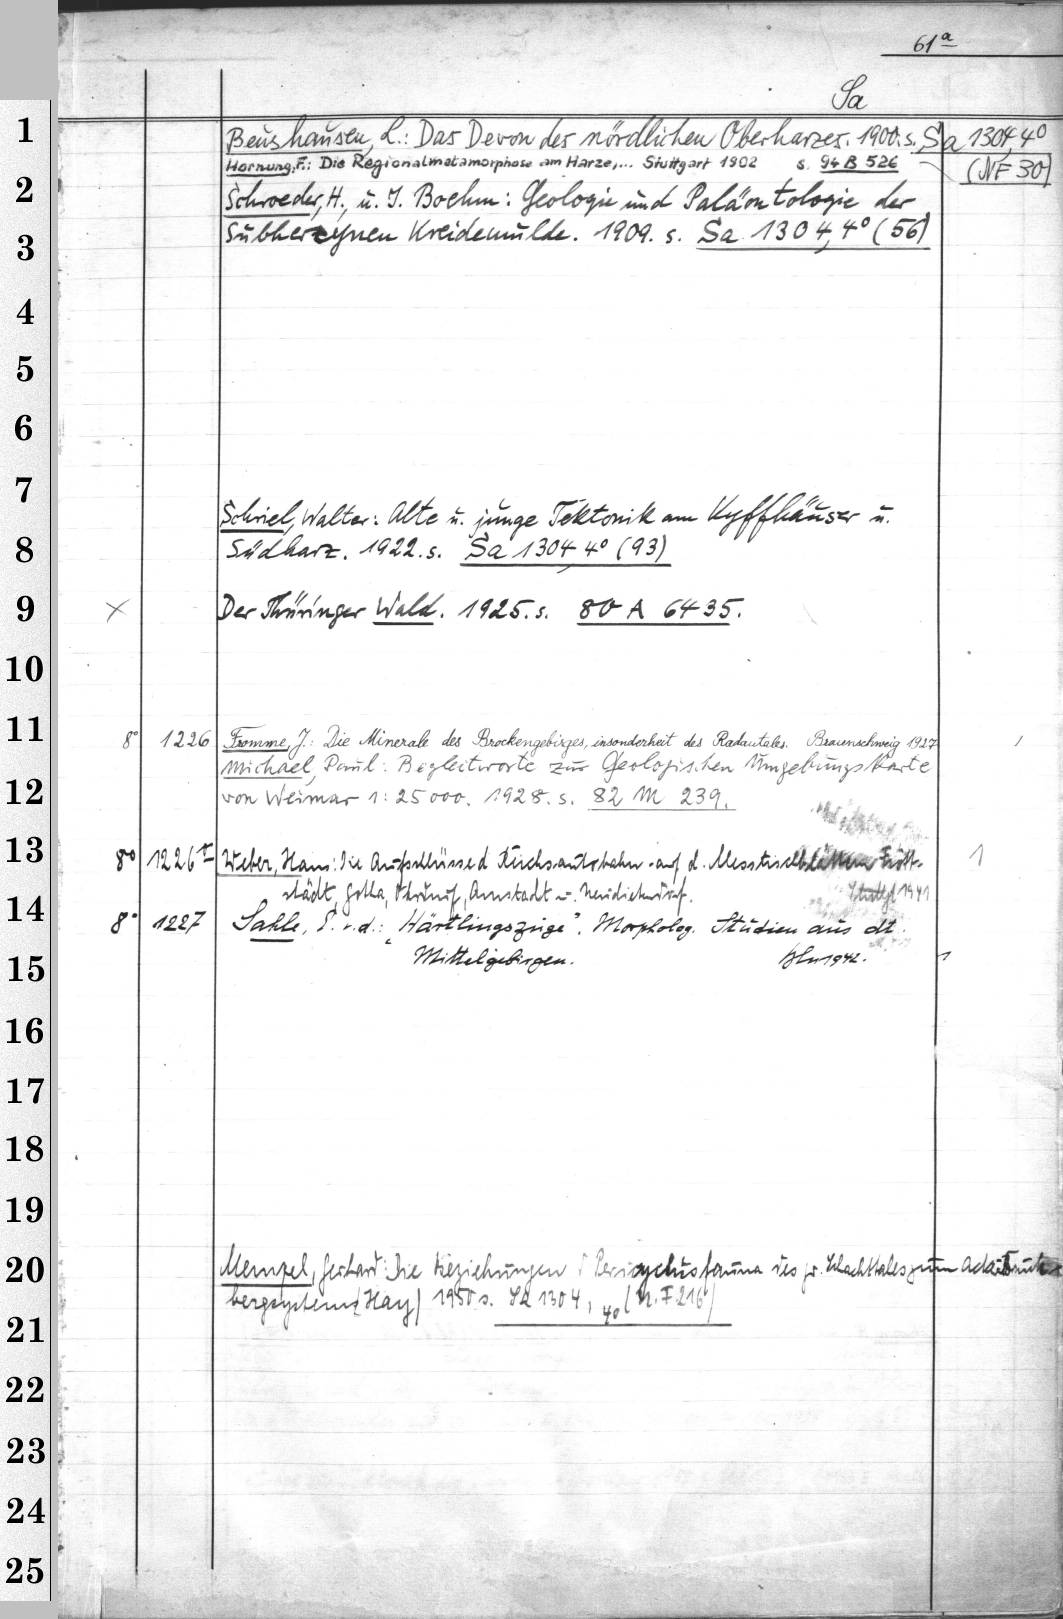 61a
Sa
1 Beushausen, L.: Das Devon des nördlichen Oberharzes. 1900. s. Sa 1304, 4°
Hornung, F.: Die Regionalmetamorphose am Harze,... Stuttgart 1902 s. 94 B 526 (NF 30)
2 Schroeder, H., u. J. Boehm: Geologie und Paläontologie der
3 Subherzynen Kreidemulde. 1909. s. Sa 1304, 4° (56)
4
5
6
7 Schriel, Walter: Alte u. junge Tektonik am Kyffhäuser u.
8 Südharz. 1922. s. Sa 1304, 4° (93)
9 × Der Thüringer Wald. 1925. s. 80 A 6435.
10
11 8° 1226 Fromme, J.: Die Minerale des Brockengebirges, insonderheit des Radautales. Braunschweig 1927 1
Michael, Paul: Begleitworte zur Geologischen Umgebungskarte
12 von Weimar 1:25000. 1928. s. 82 M 239.
13 8° 1226a Weber, Hans: Die Aufschlüsse d Reichsautobahn auf d. Messtischblättern Frött- 1
städt, Gotha, Ohrdruf, Arnstadt u. Neudietendorf. Stuttg 1941
14 8° 1227 Sahle, E. v. d.: „Härtlingszüge". Morpholog. Studien aus dt.
15 Mittelgebirgen. Bln 1942. 1
16
17
18
19
20 Menzel, Gerhard: Die Beziehungen d Pericyclusfauna des gr. Schachttales zum
bergsystem (Harz) 1950 s. Sa 1304, 4° (N.F 216)
21
22
23
24
25